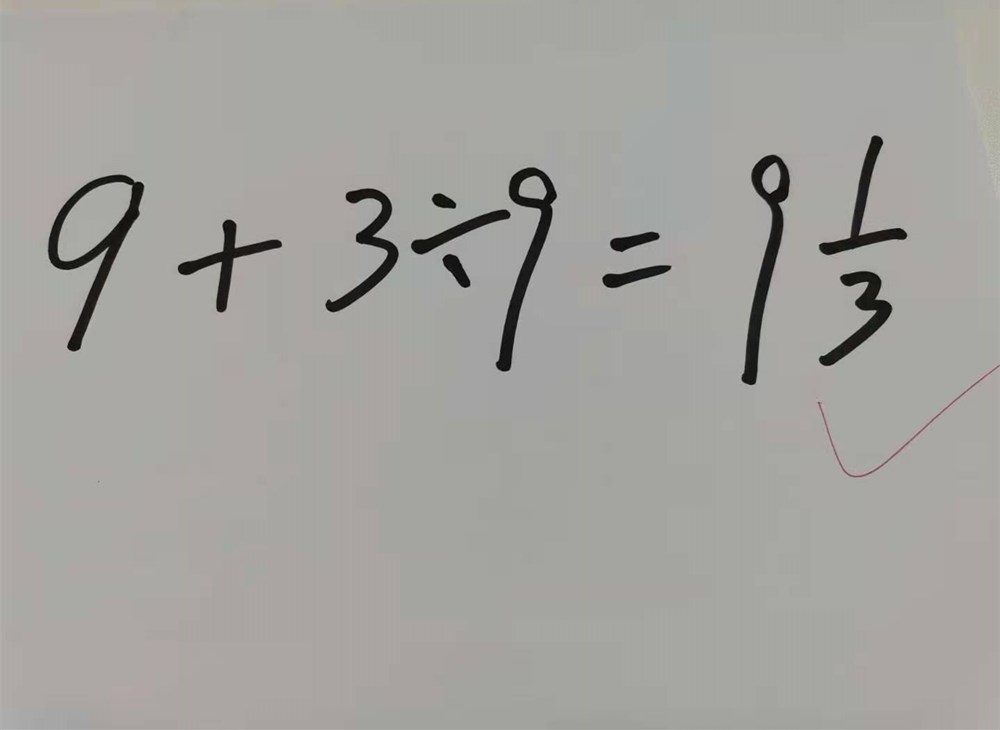 9 + 3 ÷ 9 = 9 1/3